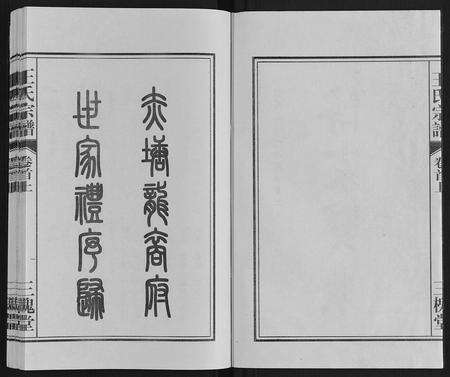 王氏宗譜 卷首上 三槐堂
赤塘龍府
世家禮序歸
王氏宗譜 卷首上 三槐堂